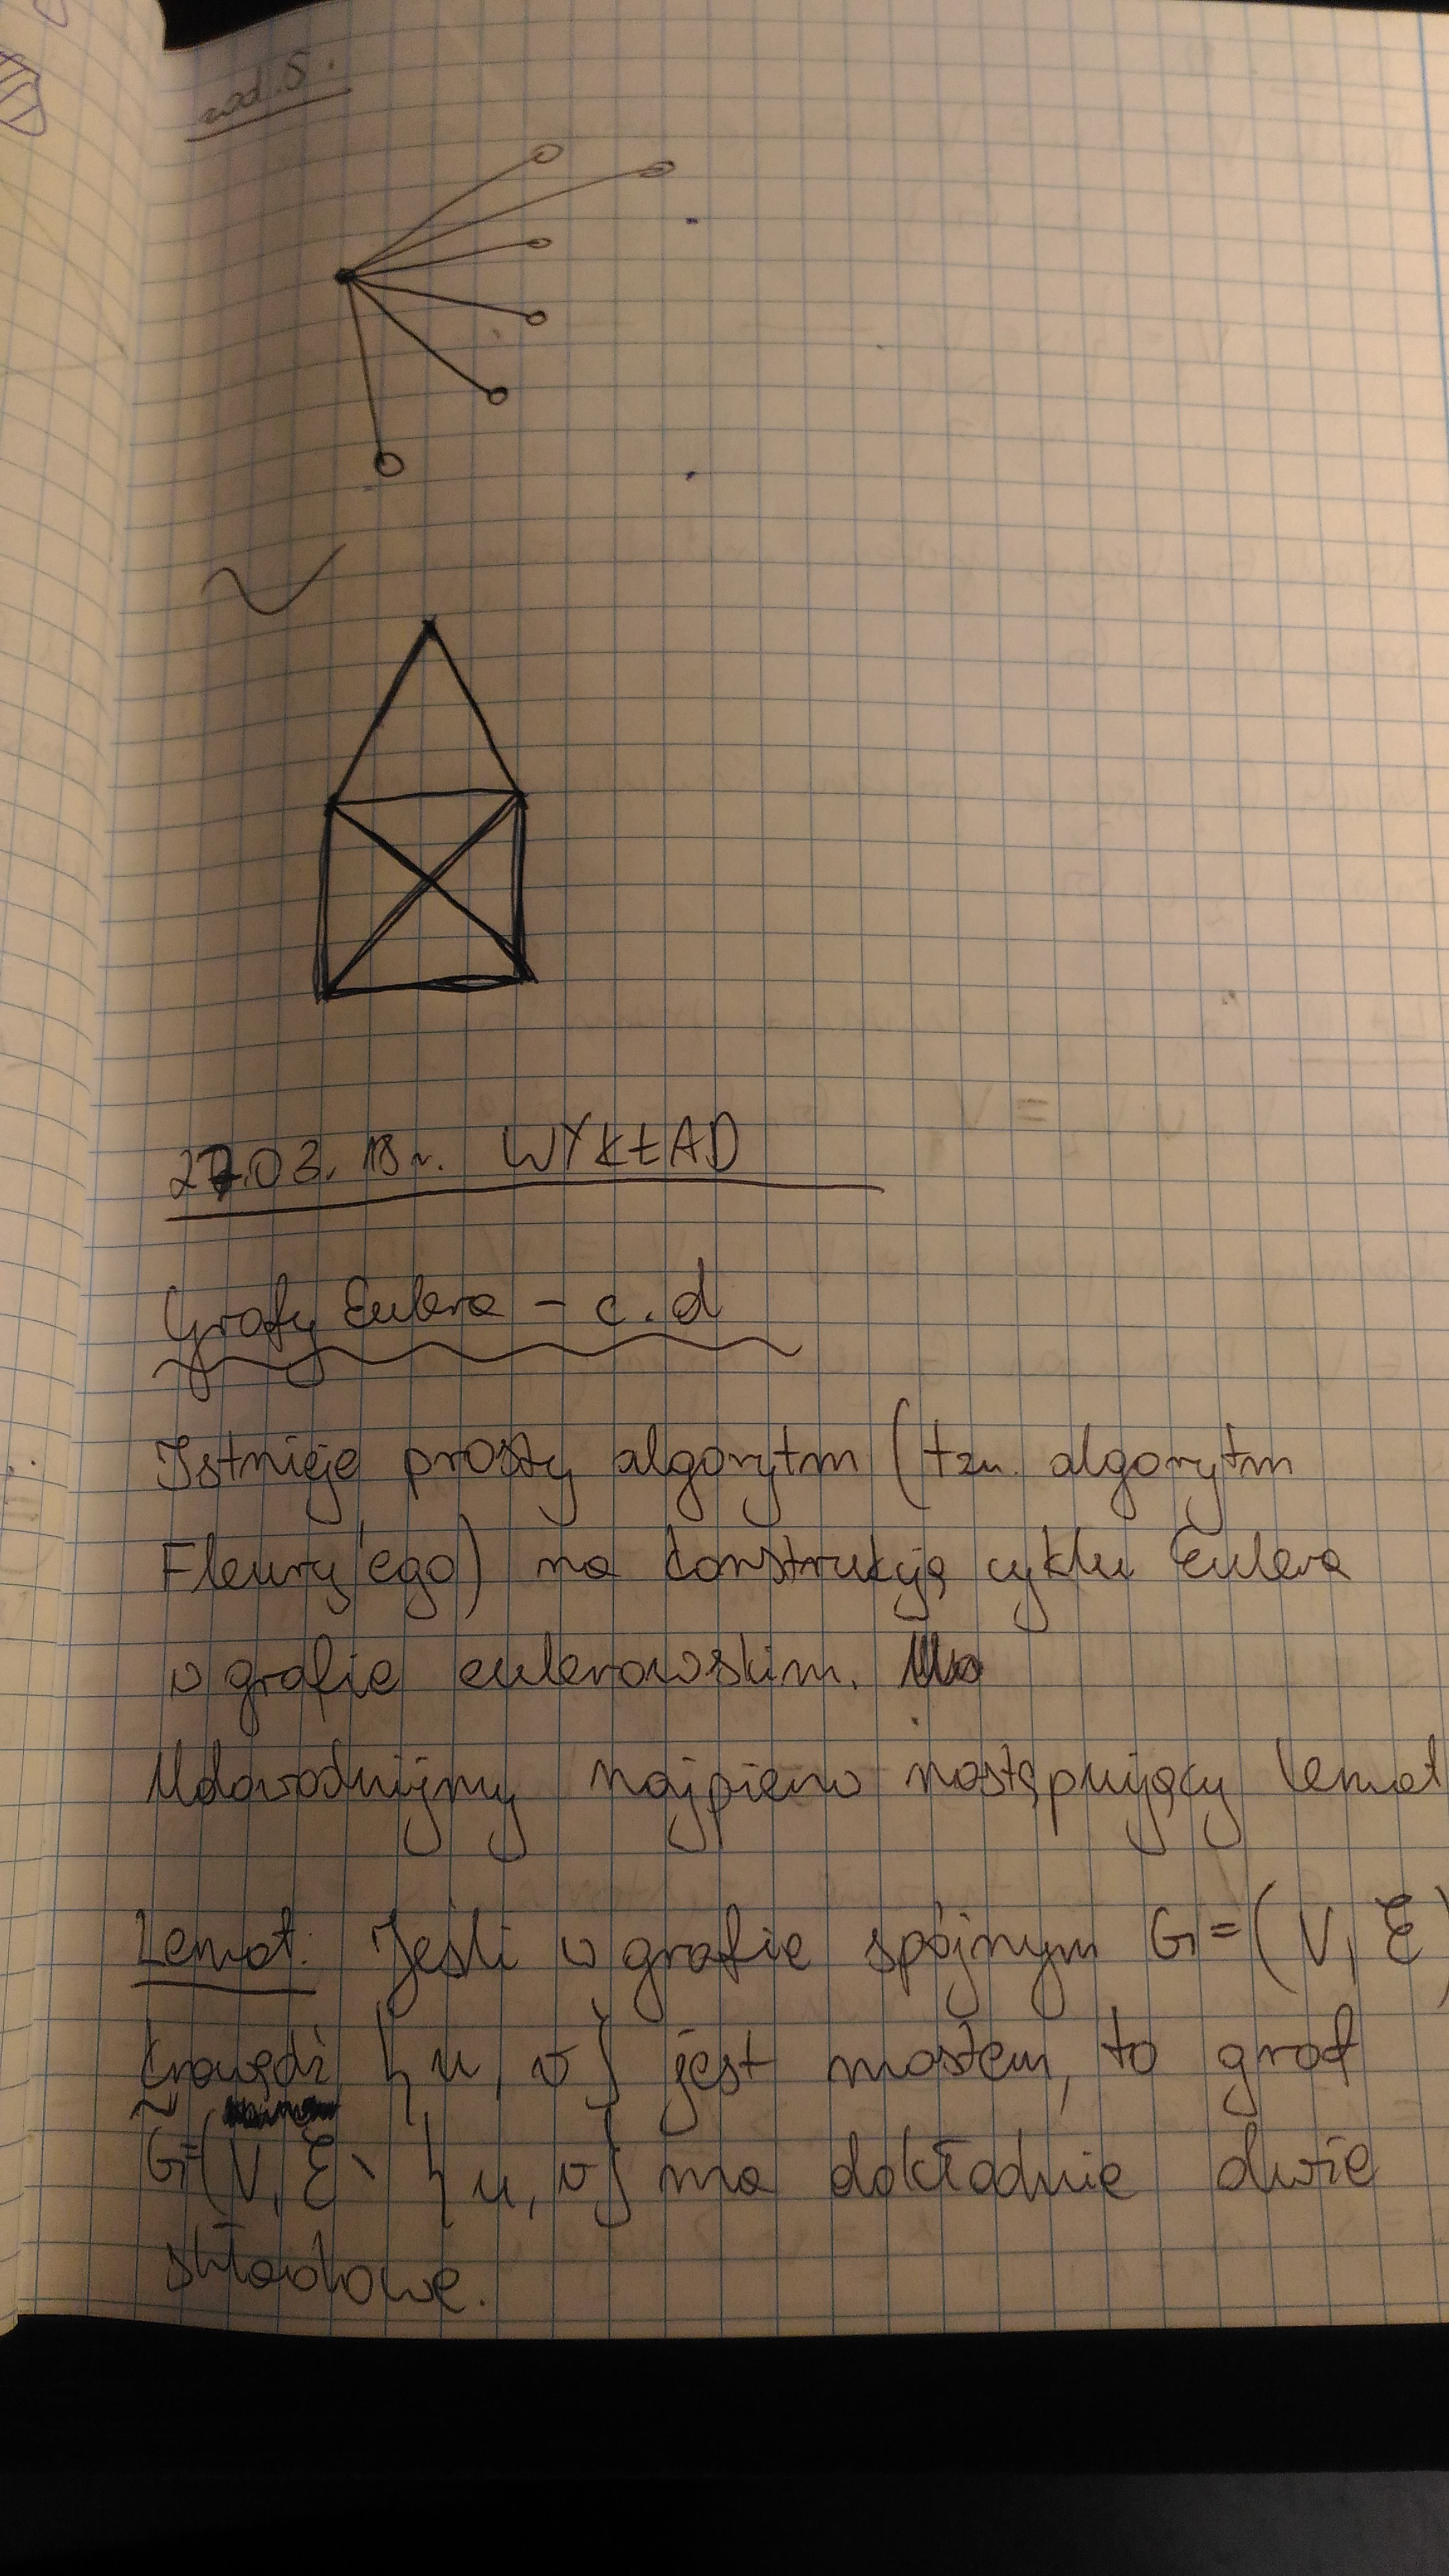 zad. 5.
27.03.18r. WYKŁAD
Grafy Eulera - c.d
Istnieje prosty algorytm (tzw. algorytm
Fleury'ego) na konstrukcję cyklu Eulera
w grafie eulerowskim.
Udowodnijmy najpierw następujący lemat
Lemat: Jeśli w grafie spójnym G=(V, E)
krawędź {u, v} jest mostem, to graf
G̃=(V, E \ {u, v} ma dokładnie dwie
składowe.